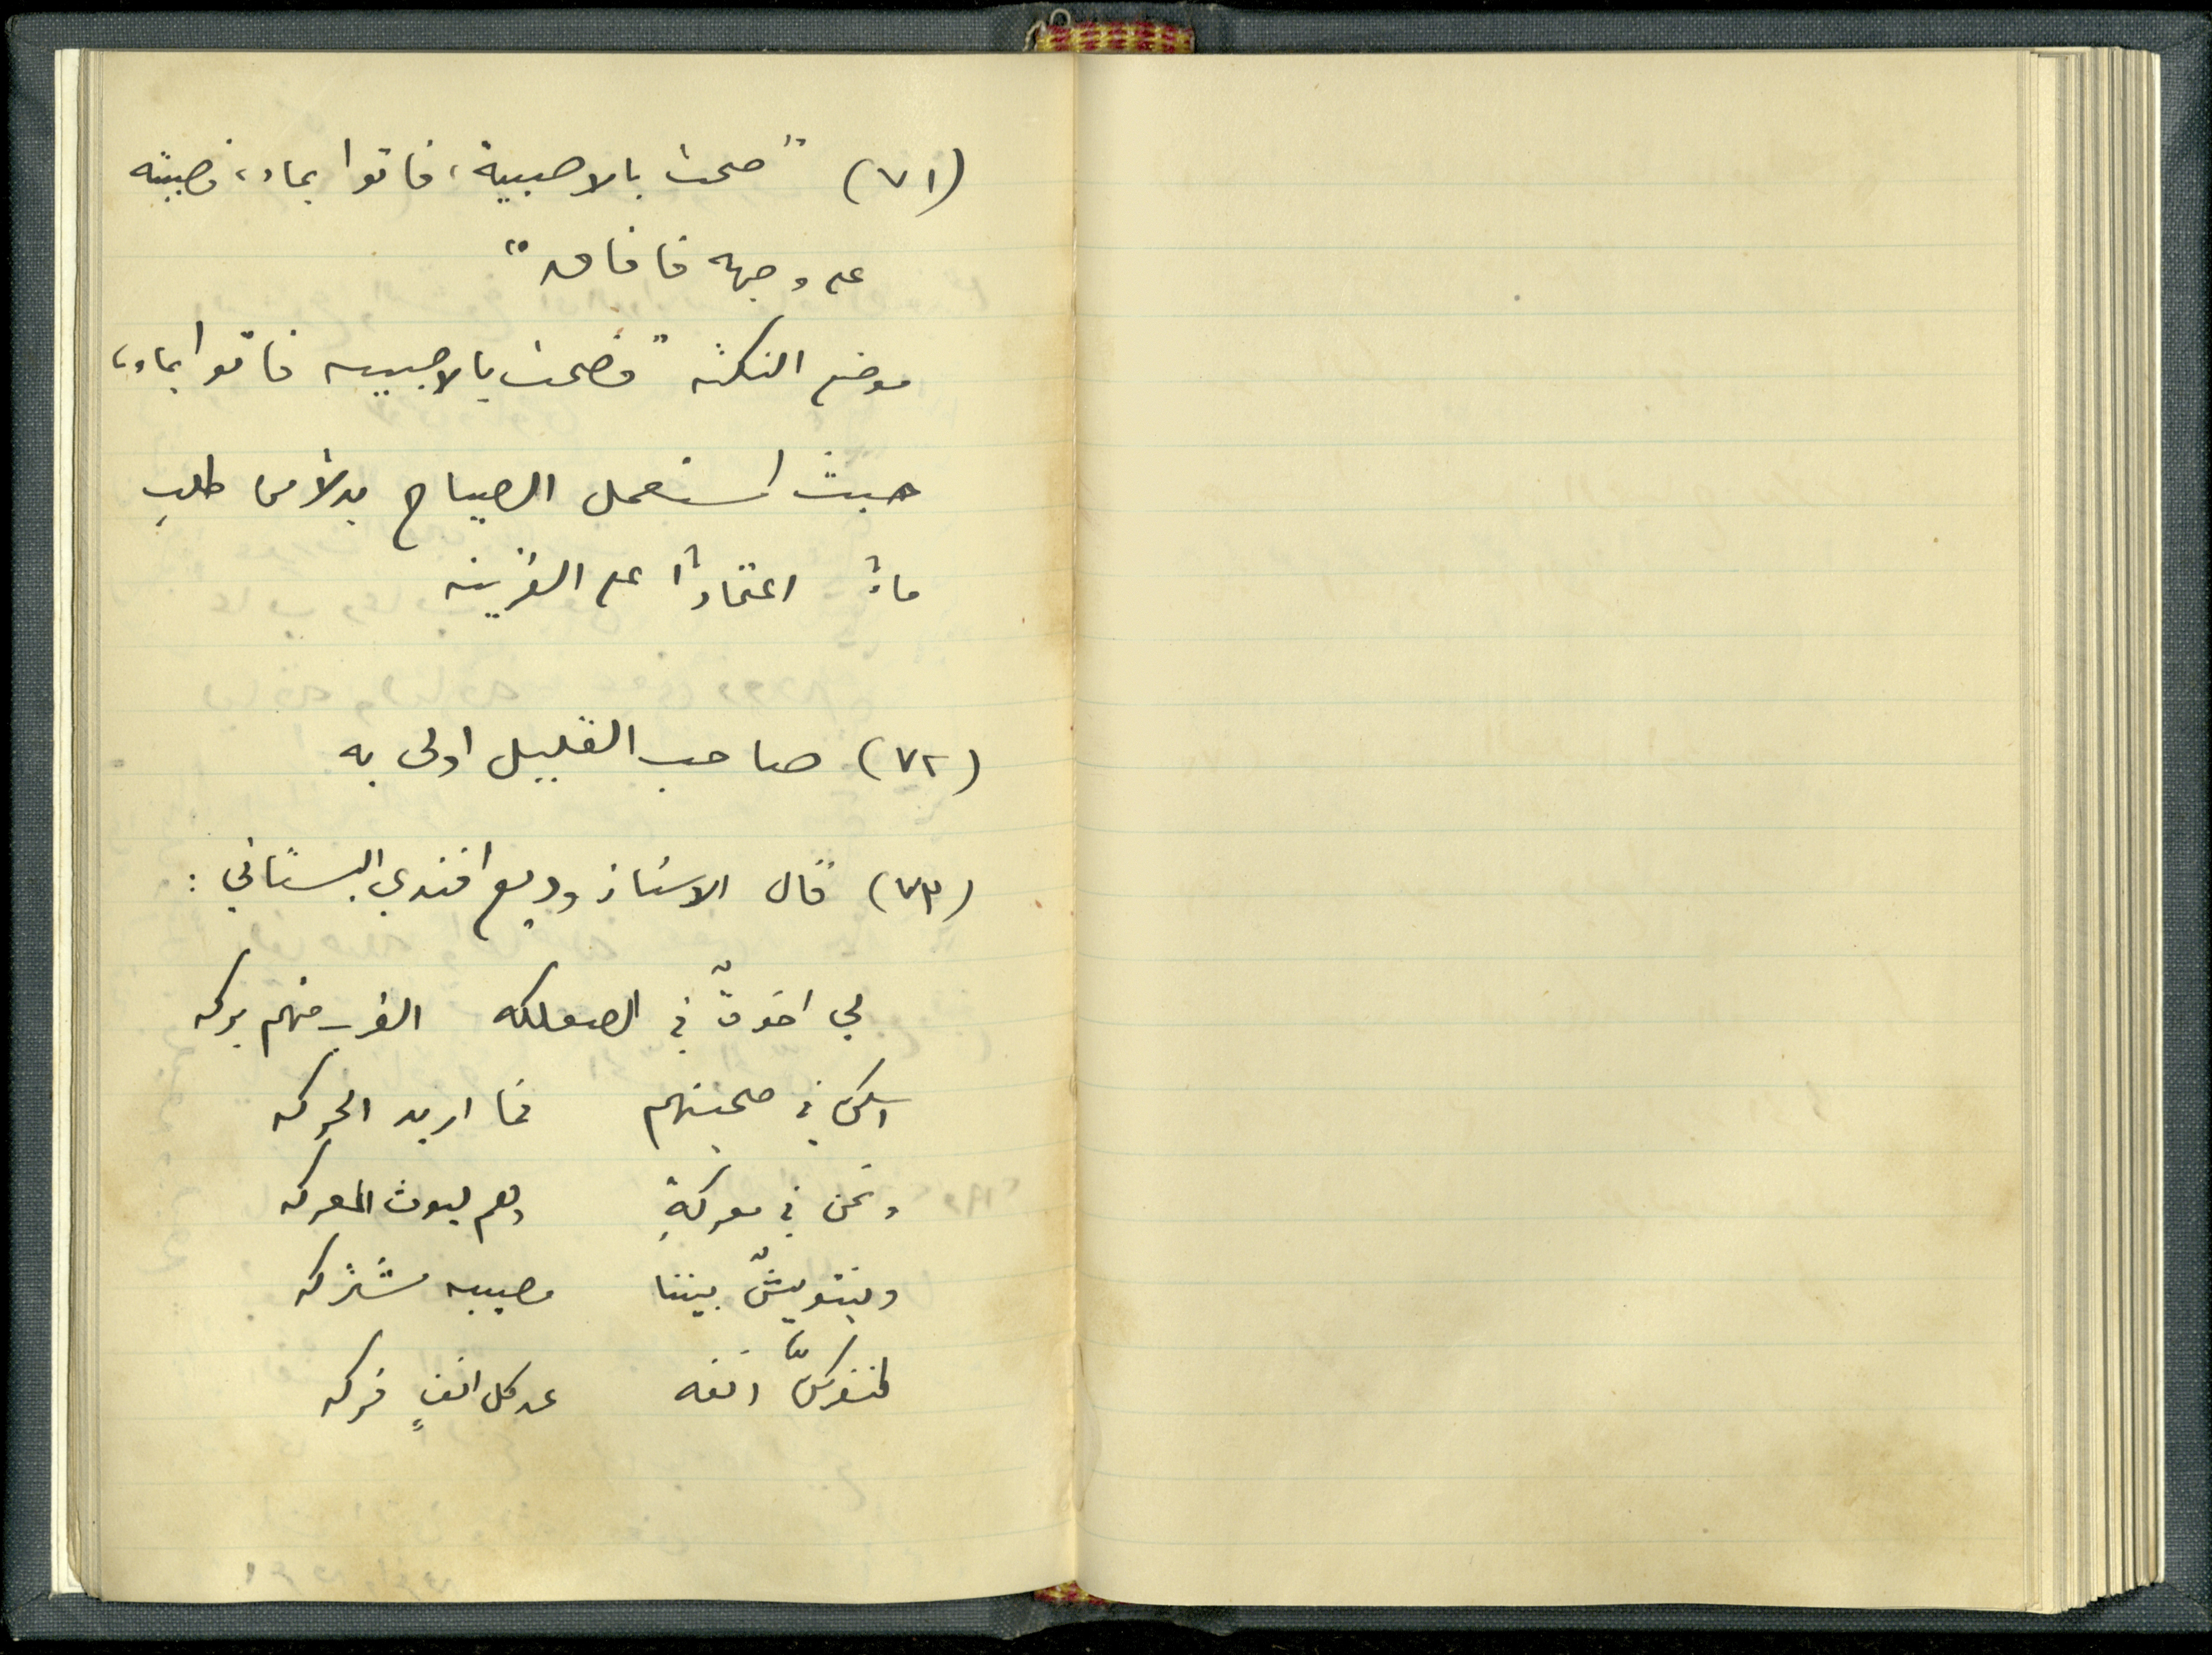 (٧١) "صحت بالاصيبية، فاتوا بماء، فصببته
على وجهه فافاق"
موضع النكتة "فصحت بالاصيبيه فاتوا بماء"
حيث استعمل الصياح بدلاً من طلبِ
ماءٍ اعتماداً على القرينه
(٧٢) صاحب القليل اولى به
(٧٣) قال الاستاذ وديع افندي البستاني :
لي اخوةٌ في الصعلكه القرب منهم بركه
اسكن في صحبتهم فما اريد الحركه
ونحن في معركةٍ وهم ليوث المعركه
بيننا مصيبه مشتركه
لنفركنَّ انفه عن كل انفٍ فركه